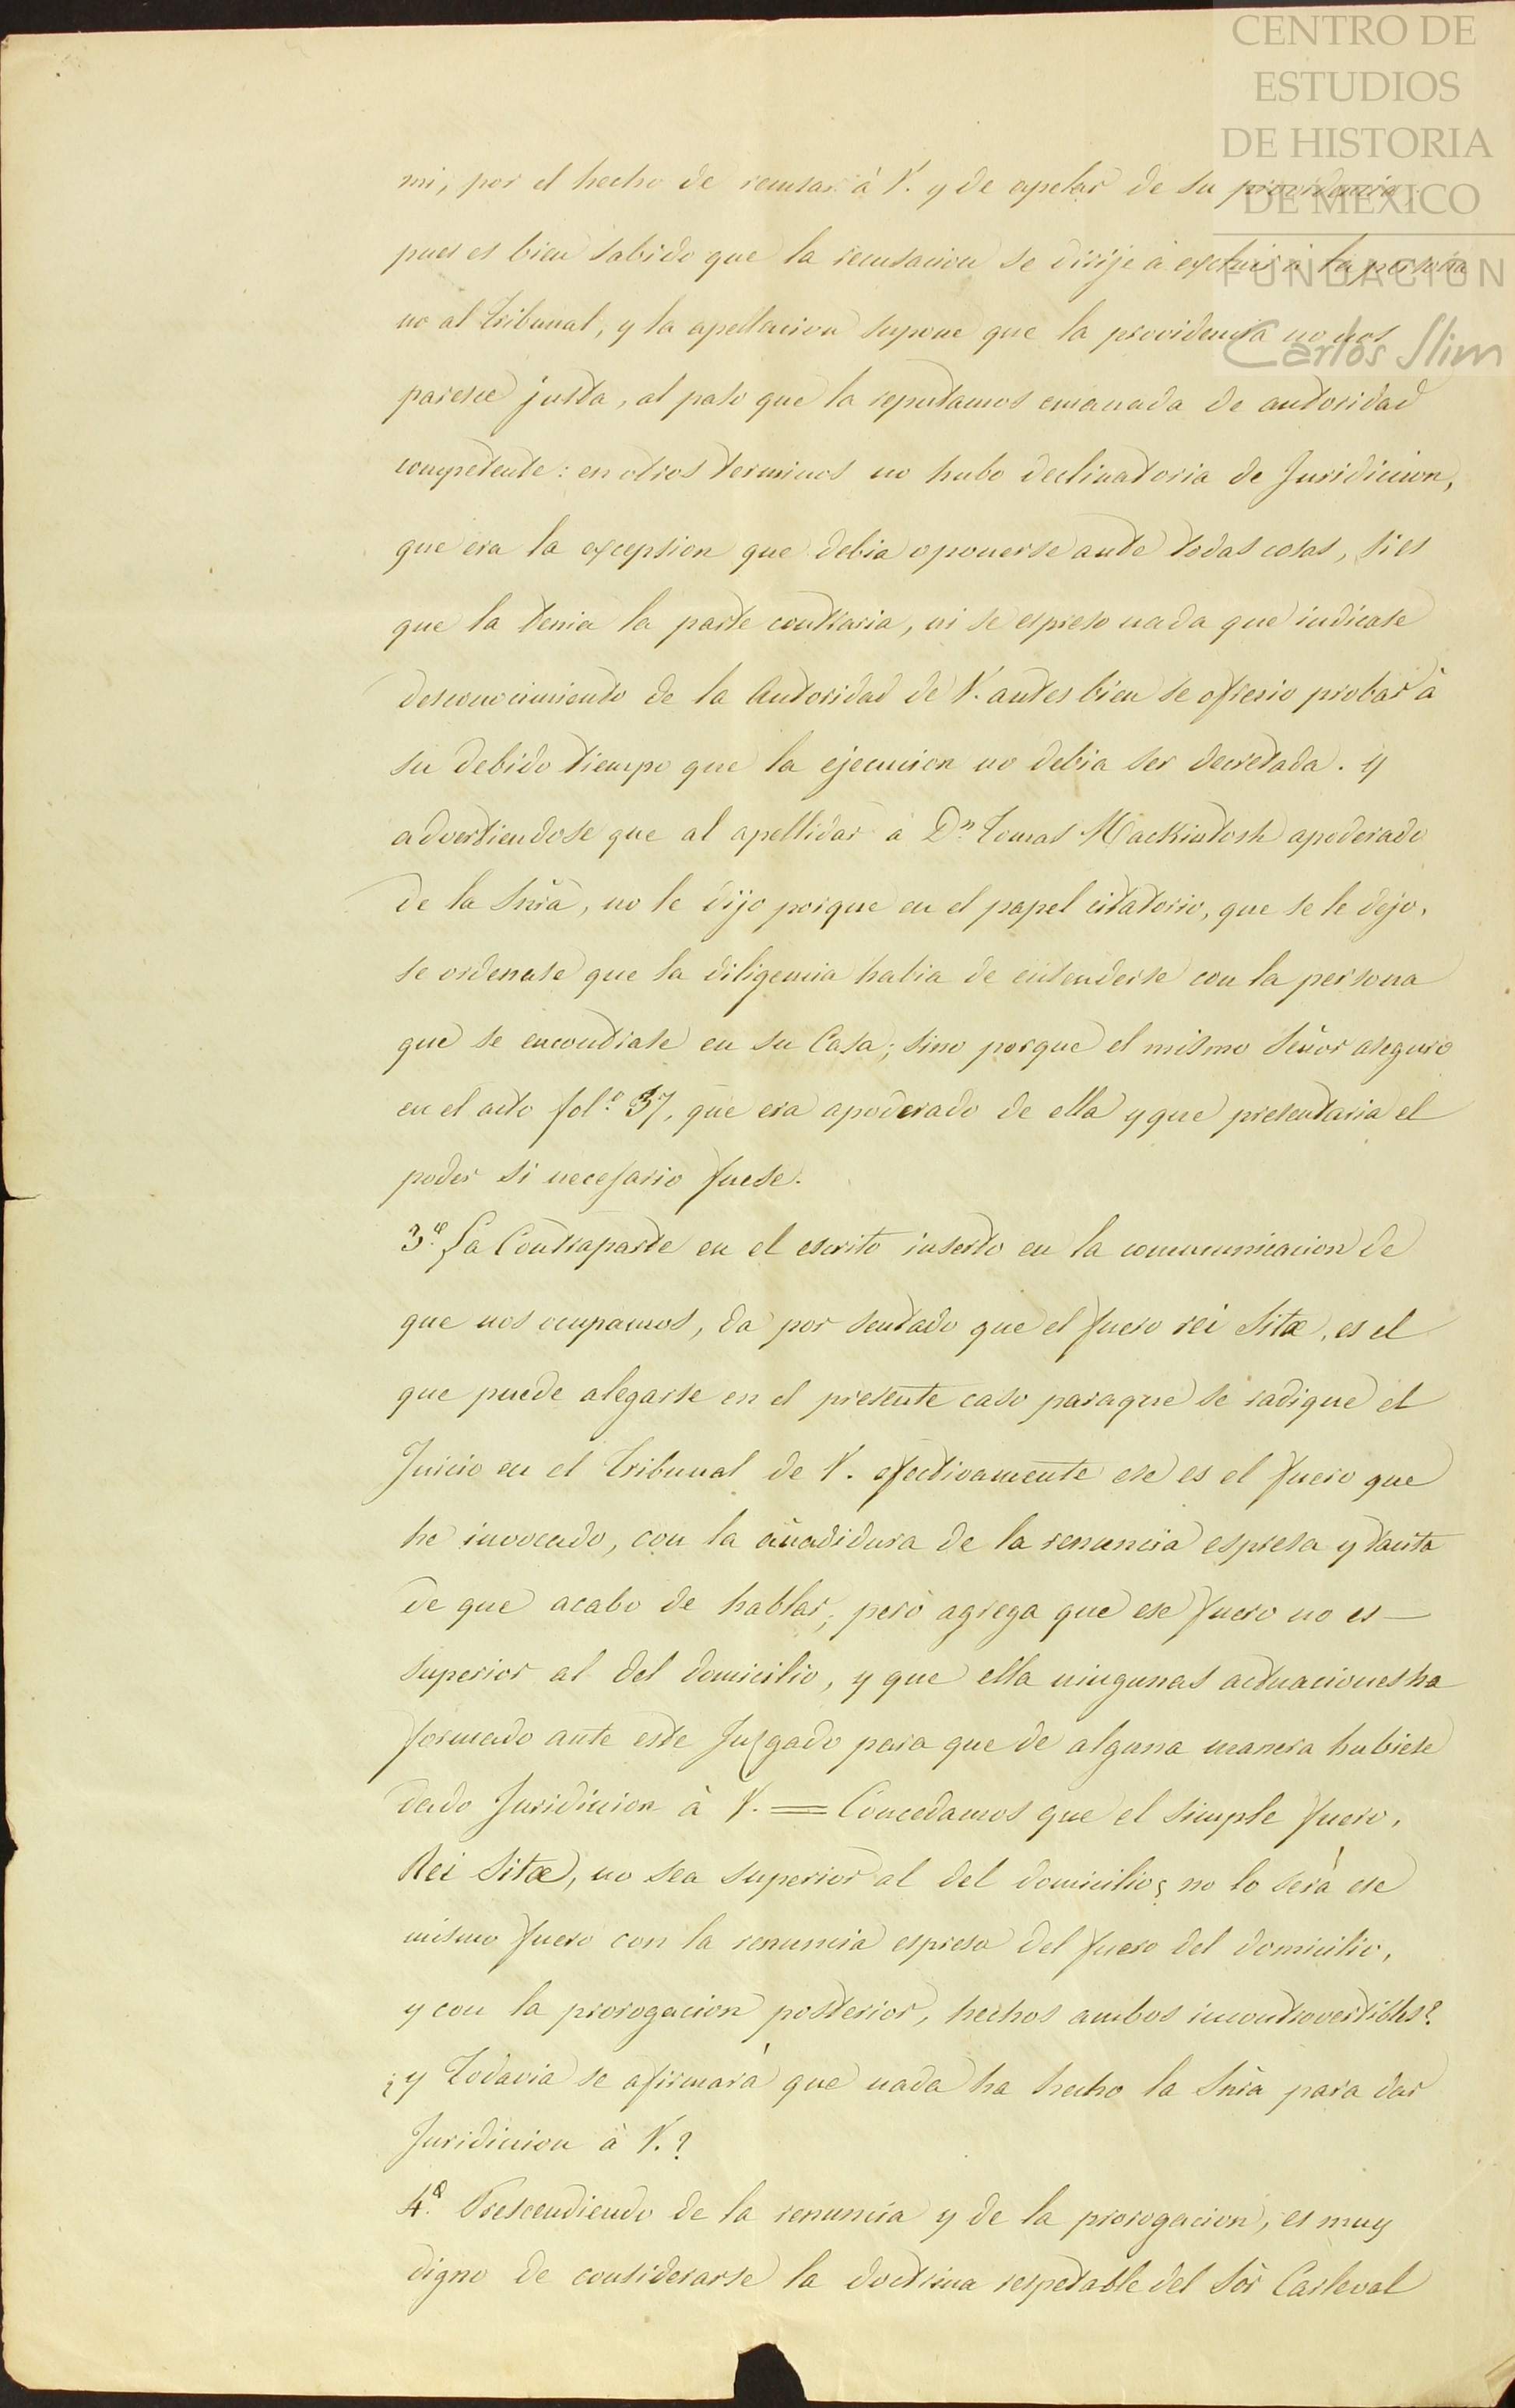 CENTRO DE
ESTUDIOS
DE HISTORIA
DE MEXICO
FUNDACION
Carlos Slim
mi, por el hecho de recusar à V. y de apelar de su providencia,
pues es bien sabido que la recusacion se dirije à escluir à la persona
no al tribunal, y la apellacion supone que la providencia no nos
parece justa, al paso que la reputamos emanada de autoridad
competente: en otros terminos no hubo declinatoria de Juridicion,
que era la excepsion que debia oponerse ante todas cosas, si es
que la tenia la parte contraria, ni se espreso nada que indicase
desconocimiento de la Autoridad de V. antes bien se ofrecio probar à
su debido tiempo que la ejecucion no debia ser decretada. y
advertiendose que al apellidar à Dn. Tomas Mackintosh apoderado
de la Sñra, no le dijo porque en el papel citatorio, que se le dejo,
se ordenase que la diligencia habia de entenderse con la persona
que se encontrase en su Casa; sino porque el mismo Señor aseguro
en el acto fol.o 37, que era apoderado de ella y que presentaria el
poder si necesario fuese.
3.a La Contraparte en el escrito inserto en la communicacion de
que nos ocupamos, da por sentado que el fuero rei Sitæ, es el
que puede alegarse en el presente caso paraque se radique el
Juicio en el Tribunal de V. efectivamente ese es el fuero que
he invocado, con la añadidura de la renuncia espresa y tacita
de que acabo de hablar; pero agrega que ese fuero no es —
superior al del domicilio, y que ella ningunas actuaciones ha
formado ante este Juzgado para que de alguna manera hubiese
dado Juridicion à V. = Concedamos que el simple fuero,
Rei Sitæ, no sea superior al del domicilio ¿ no lo serà ese
mismo fuero con la renuncia espresa del fuero del domicilio,
y con la prorogacion posterior, hechos ambos incontrovertibles?
¿y Todavia se afirmarà que nada ha hecho la Sñra para dar
Juridicion à V.?
4.a Prescendiendo de la renuncia y de la prorogacion, es muy
digno de considerarse la doctrina respetable del Sòr Carleval